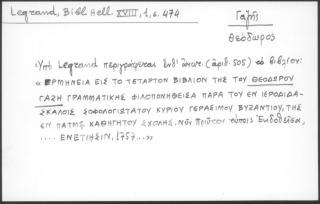 Legrand, Bibl. Hell. XVIII, 1, σ. 474
Γαζῆς
Θεόδωρος
Ὑπὸ Legrand περιγράφεται ἐνθ' ἀνωτ. (ἀριθ. 505) τὸ βιβλίον:
« ΕΡΜΗΝΕΙΑ ΕΙΣ ΤΟ ΤΕΤΑΡΤΟΝ ΒΙΒΛΙΟΝ ΤΗΣ ΤΟΥ ΘΕΟΔΩΡΟΥ
ΓΑΖΗ ΓΡΑΜΜΑΤΙΚΗΣ ΦΙΛΟΠΟΝΗΘΕΙΣΑ ΠΑΡΑ ΤΟΥ ΕΝ ΙΕΡΟΔΙΔΑ-
ΣΚΑΛΟΙΣ ΣΟΦΟΛΟΓΙΩΤΑΤΟΥ ΚΥΡΙΟΥ ΓΕΡΑΣΙΜΟΥ ΒΥΖΑΝΤΙΟΥ, ΤΗΣ
ΕΝ ΠΑΤΜῼ ΚΑΘΗΓΗΤΟΥ ΣΧΟΛΗΣ. Νῦν πρῶτον τύποις Ἐκδοθεῖσα,
.... ΕΝΕΤΙΗΣΙΝ, 1757...»